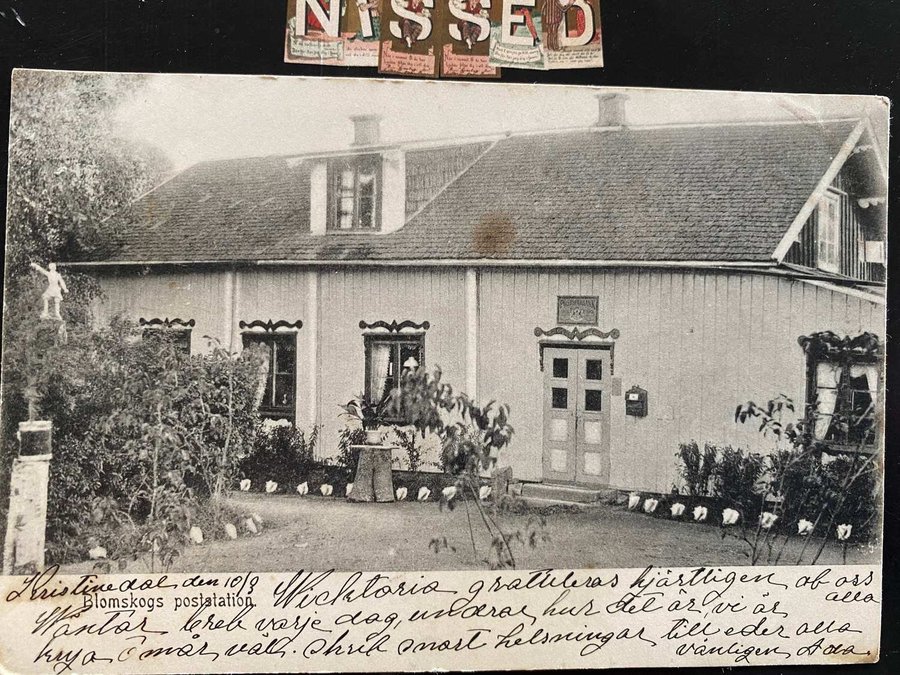 NISSED
Kristinedal den 10/9 Wicktoria gratuleras hjärtligen af oss alla
Blomskogs poststation.
Wäntar breb varje dag, undrar hur det är, vi är
krya o mår väl. skrib snart helsningar till eder alla
vänligen Ada.